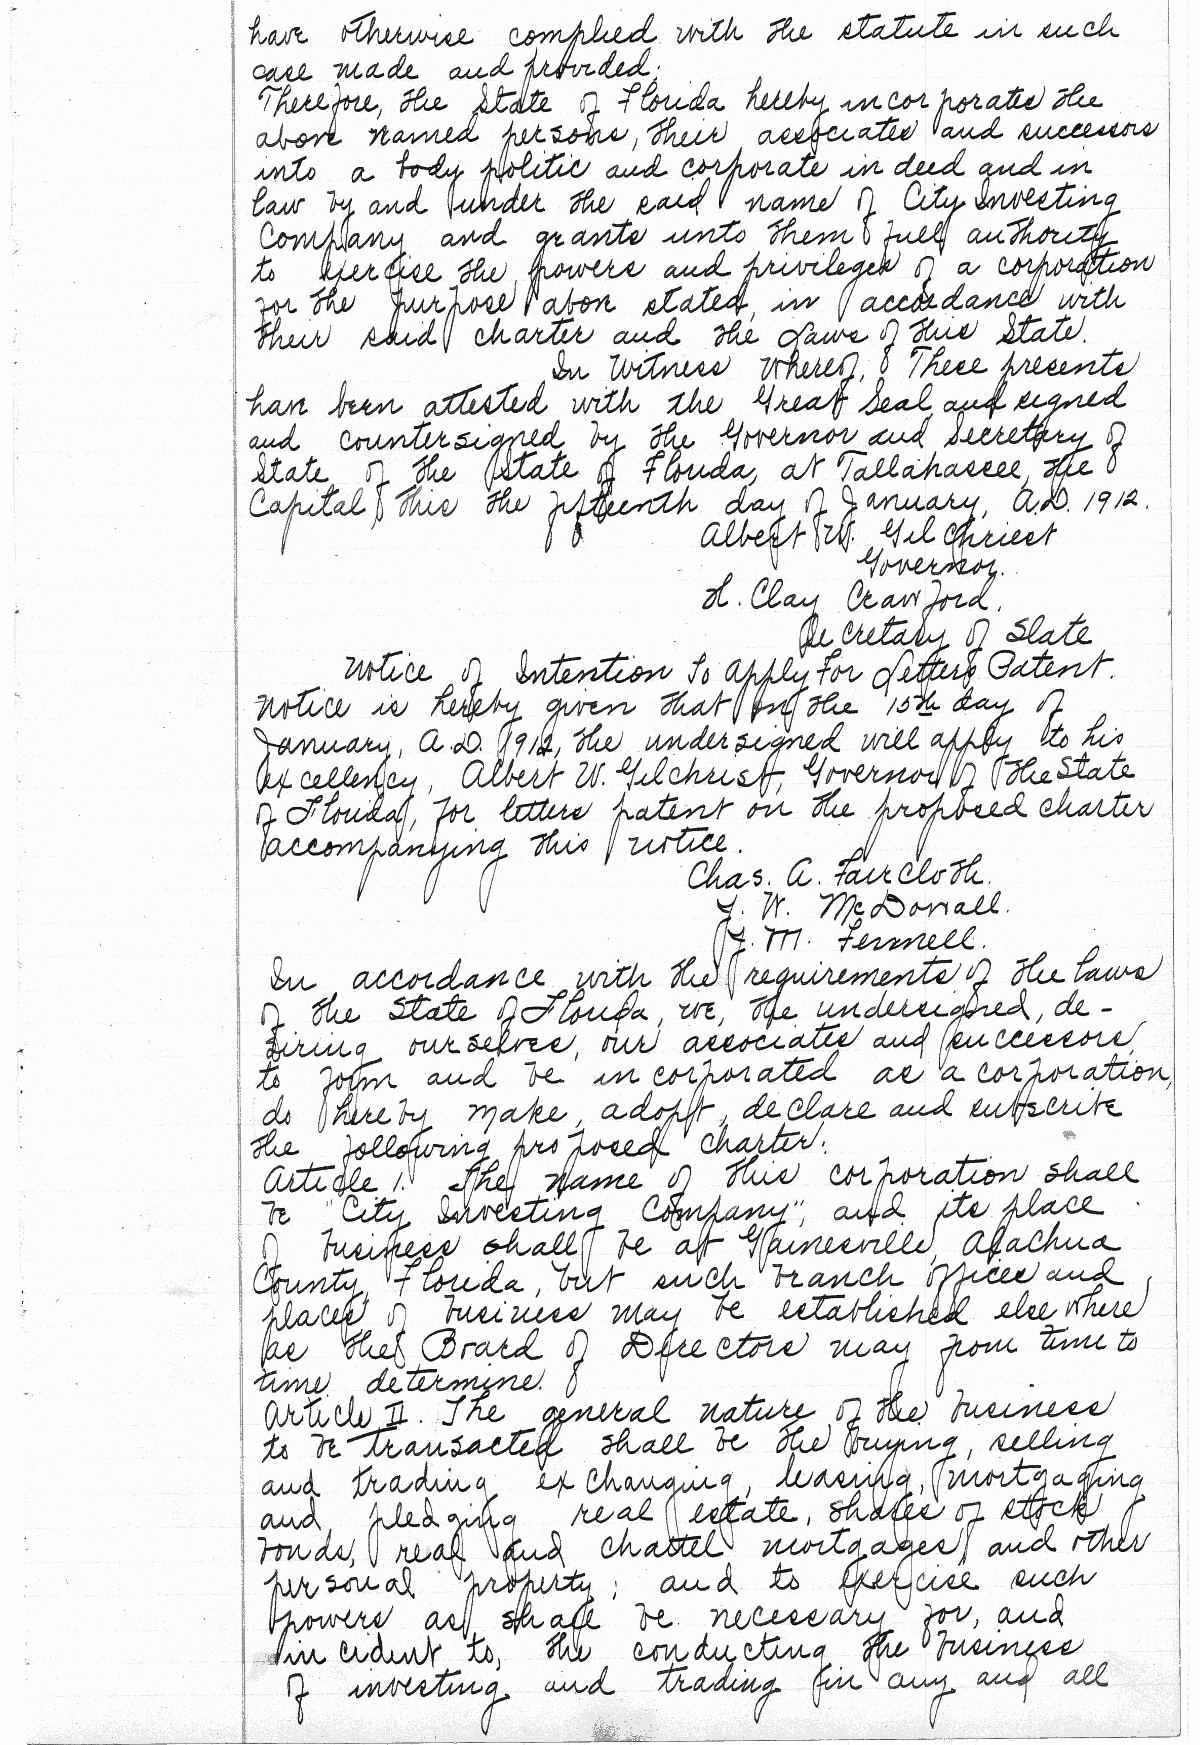 have otherwise complied with the statute in such
case made and provided:
Therefore, the State of Florida hereby incorporates the
above named persons, their associates and successors
into a body politic and corporate in deed and in
law by and under the said name of City Investing
Company and grants unto them full authority
to exercise the powers and privileges of a corporation
for the purpose above stated, in accordance with
their said charter and the Laws of this State.
In Witness Whereof, These presents
have been attested with the Great Seal and signed
and countersigned by the Governor and Secretary of
State of the State of Florida, at Tallahassee, the
Capital, this the fifteenth day of January, A.D. 1912.
Albert W. Gilchriest
Governor.
H. Clay Crawford.
Secretary of State
Notice of Intention To Apply For Letters Patent.
Notice is hereby given that on the 15th day of
January, A.D. 1912, the undersigned will apply to his
excellency, Albert W. Gilchrist, Governor of the State
of Florida, for letters patent on the proposed charter
accompanying this notice.
Chas. A. Faircloth.
J. W. McDowall.
J. M. Fennell.
In accordance with the requirements of the laws
of the State of Florida, we, the undersigned, de-
siring ourselves, our associates and successors,
to form and be incorporated as a corporation,
do hereby make, adopt, declare and subscribe
the following proposed charter:
Article 1. The name of this corporation shall
be "City Investing Company", and its place
of business shall be at Gainesville, Alachua
County, Florida, but such branch offices and
places of business may be established elsewhere
as the Board of Directors may from time to
time determine.
Article II. The general nature of the business
to be transacted shall be the buying, selling
and trading exchanging, leasing, mortgaging
and pledging real estate, shares of stock
bonds, real and chattel mortgages, and other
personal property; and to exercise such
powers as shall be necessary for, and
incident to, the conducting the business
of investing and trading in any and all